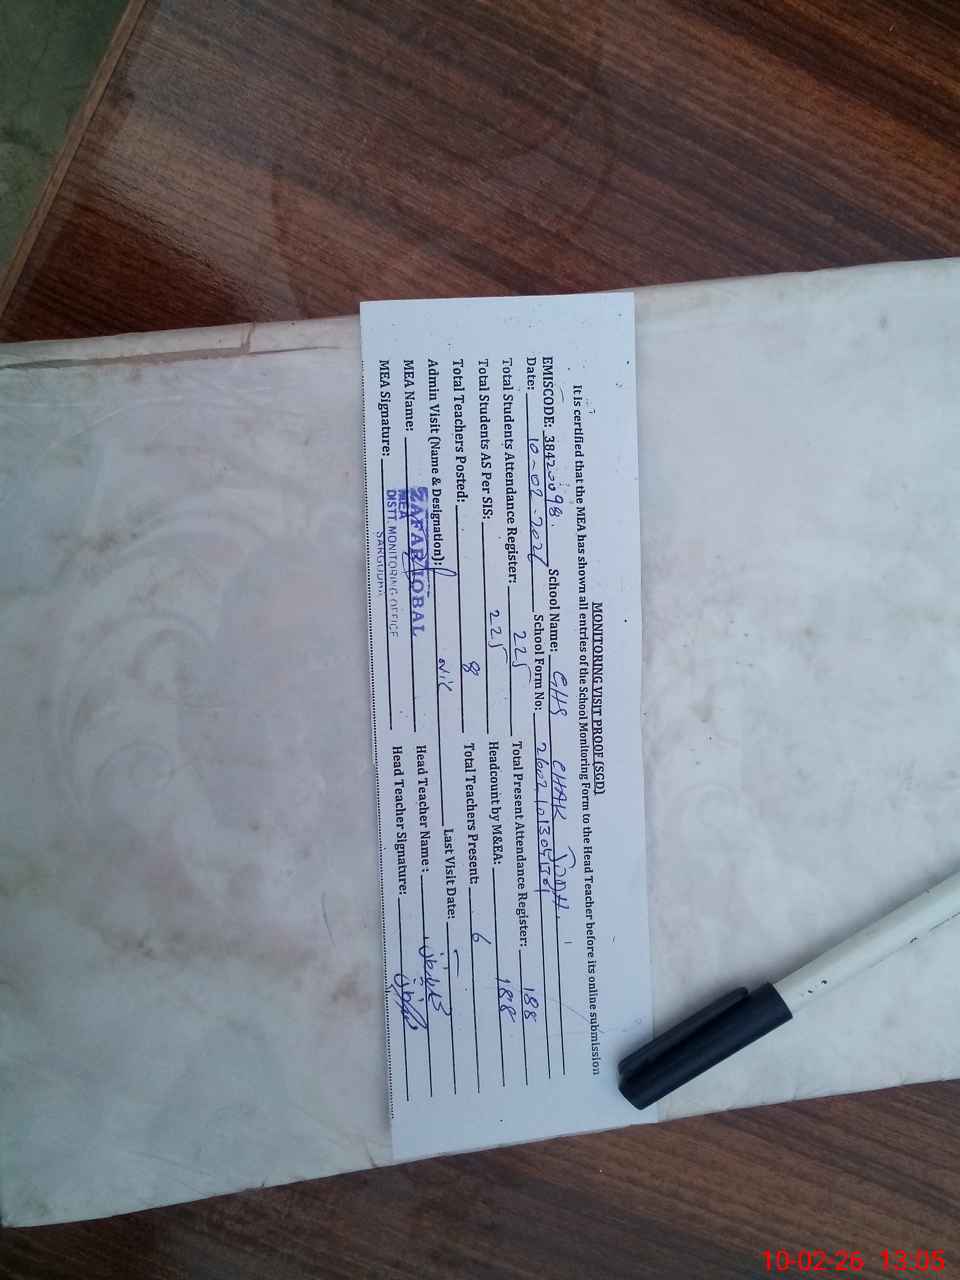 MONITORING VISIT PROOF (SGD)
It is certified that the MEA has shown all entries of the School Monitoring Form to the Head Teacher before its online submission
EMISCODE: 38420098. School Name: GHS CHAK
Date: 10-02-2026 School Form No:
Total Students Attendance Register: 225 Total Present Attendance Register: 188
Total Students AS Per SIS: 225 Headcount by M&EA: 188
Total Teachers Posted: 8 Total Teachers Present: 6
Admin Visit (Name & Designation): Nil Last Visit Date:
MEA Name: ZAFAR IQBAL Head Teacher Name:
MEA
MEA Signature: DISTT. MONITORING OFFICE Head Teacher Signature:
SARGODHA
10-02-26 13:05